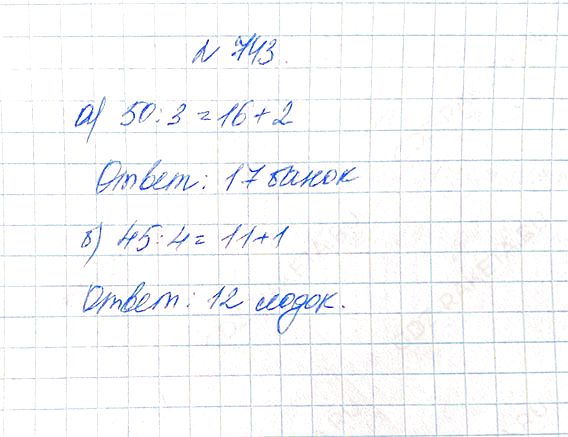 № 743.
а) 50:3=16+2
Ответ: 17 банок
б) 45:4= 11+1
Ответ: 12 лодок.